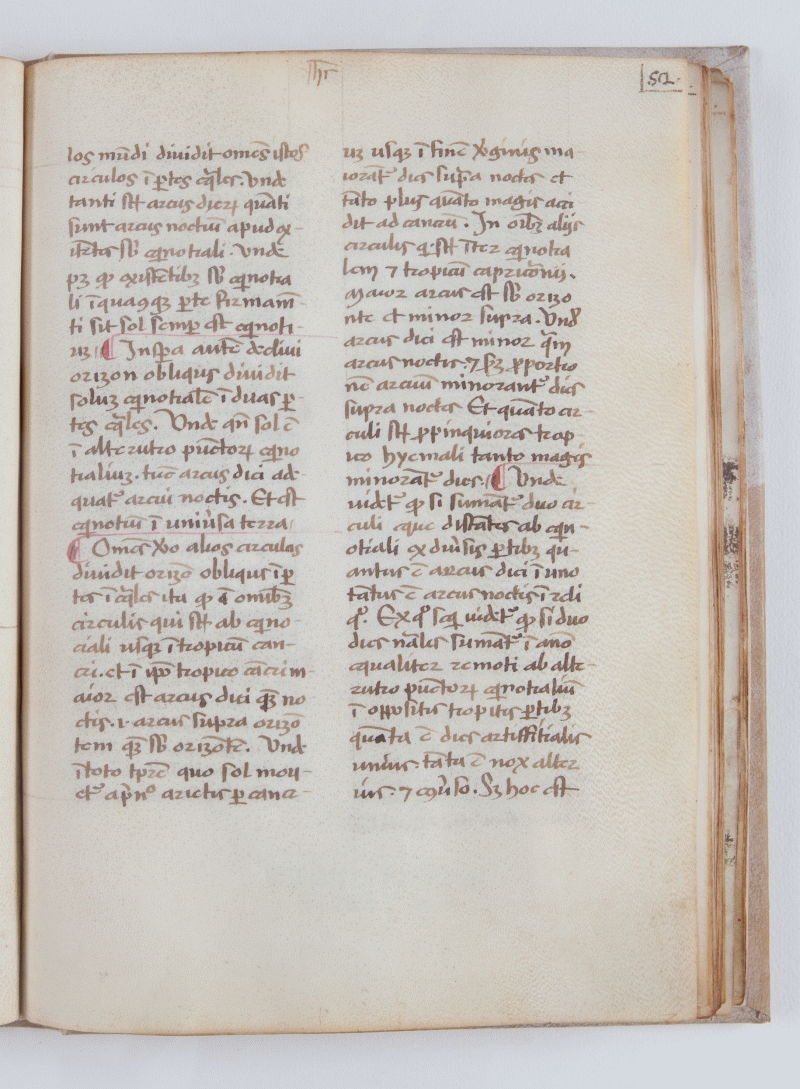 52
los mūdi dividit omēs istos
circulos ī ꝑtes eq̄les. Vnde
tanti st̄ arcus dierꝝ quāti
sunt arcus noctiū apud ex-
ītes sb̄ eq̄notiali. Vnde
pꝫ ꝙ existētibꝫ sb̄ eq̄notia
li ī quacūqꝫ ꝑte firmamē-
ti sit sol semꝑ est eq̄noti-
uꝫ. ¶ In spa autē declivi
orizon obliqus dividit
soluꝫ eq̄notialē ī duas ꝑ-
tes eq̄les. Vnde qn̄ sol ē
ī alterutro pūctorꝝ eq̄no
tialiuꝫ. tūc arcus diei ade-
quat᷑ arcui noctis. Et est
eq̄notiū ī univ̄sa terra
¶ Omēs v̊o alios circulos
dividit orizō obliqus ī ꝑ
tes ī eq̄les ita ꝙ ī omībꝫ
circulis qui st̄ ab eq̄no-
ciali usqꝫ ī tropicū can-
cri. et ī ip̄o tropico cācri m-
aior est arcus diei qꝫ no
ctis. i. arcus supra orizō
tem qꝫ sb̄ orizōte. Vnd̄
ī toto tp̄re quo sol mou-
et᷑ a pn̊ arietis ꝑ canc-
uꝫ usqꝫ ī finē v̊ginis ma-
iorat᷑ dies sup̄a noctes et
tāto plus quāto magis acci
dit ad cancrū. In oībꝫ alijs
circulis q̇ st̄ īter eq̄notia
lem ⁊ tropicū capricorni.
Maior arcus est sb̄ orizo
nte et minor supra. Vnd̄
arcus diei est minor q̄m
arcus noctis. ⁊ sꝫ ꝓportio
nē arcuū minorant᷑ dies
supra noctes Et quāto cir-
culi st̄ ꝓpinquiores trop-
ico hyemali tanto magis
minorāt᷑ dies. ¶ Vnde
uidet᷑ ꝙ si sumāt᷑ duo cir-
culi eque distātes ab eq̄n-
otiali ex div̄sis ꝑtibꝫ qu-
antus ē arcus diei ī uno
tātus ē arcus noctis ī reli
q̊. Ex q̊ seq̇ uidet᷑ ꝙ si duo
dies nāles sumāt᷑ ī āno
equaliter remoti ab alte-
rutro pūctorꝝ eq̄notialiū
ī oppositis tropicis ꝑtibꝫ
quāta ē dies artiffitialis
unius. tāta ē nox alter
ius. ⁊ ecōv̄so. Sꝫ hoc est